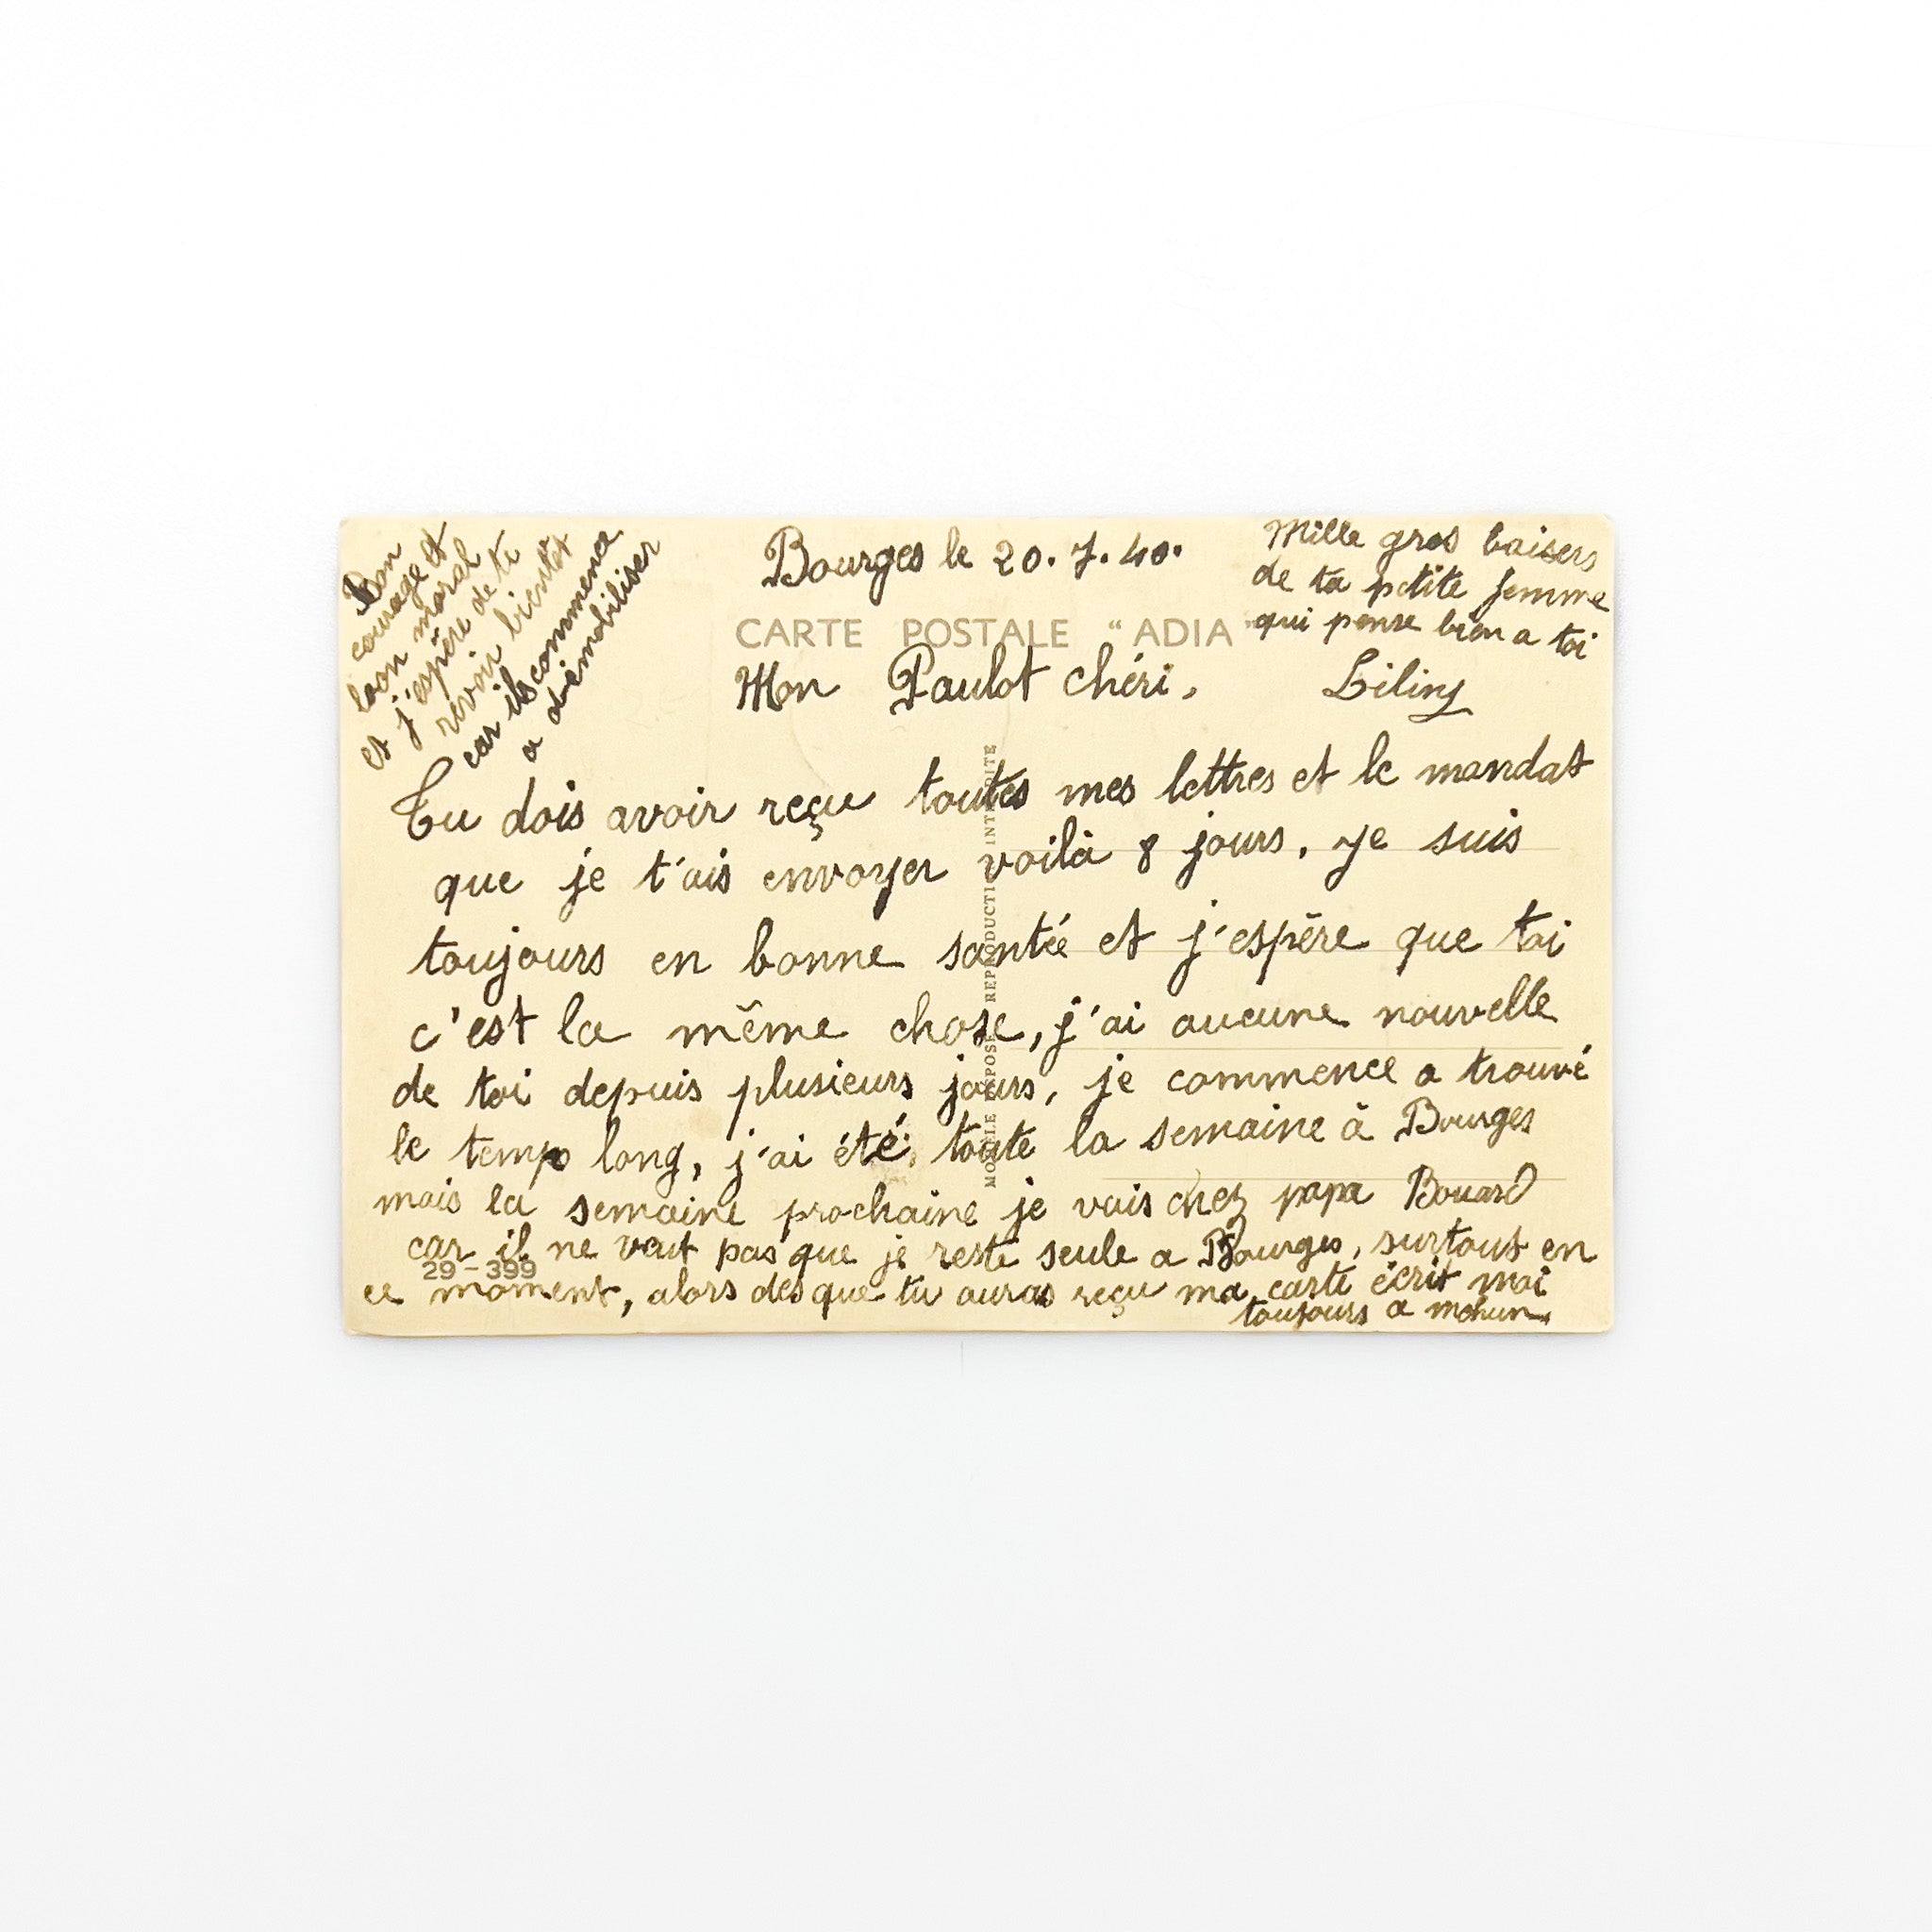 Bourges le 20.7.40.
CARTE POSTALE "ADIA"
Mon Paulot chéri,
Tu dois avoir reçu toutes mes lettres et le mandat
que je t'ais envoyer voilà 8 jours, je suis
toujours en bonne santée et j'espère que toi
c'est la même chose, j'ai aucune nouvelle
de toi depuis plusieurs jours, je commence a trouvé
le temps long, j'ai été toute la semaine à Bourges
mais la semaine prochaine je vais chez papa Bouard
car il ne veut pas que je reste seule a Bourges, surtout en
29-399
ce moment, alors des que tu auras reçu ma carte écrit moi
toujours a mehun
Bon
courage et
bon moral
et j'espère de te
revoir bientot
car ils commence
a démobiliser
Mille gros baisers
de ta petite femme
qui pense bien a toi
Liliny
MODÈLE DÉPOSÉ REPRODUCTION INTERDITE